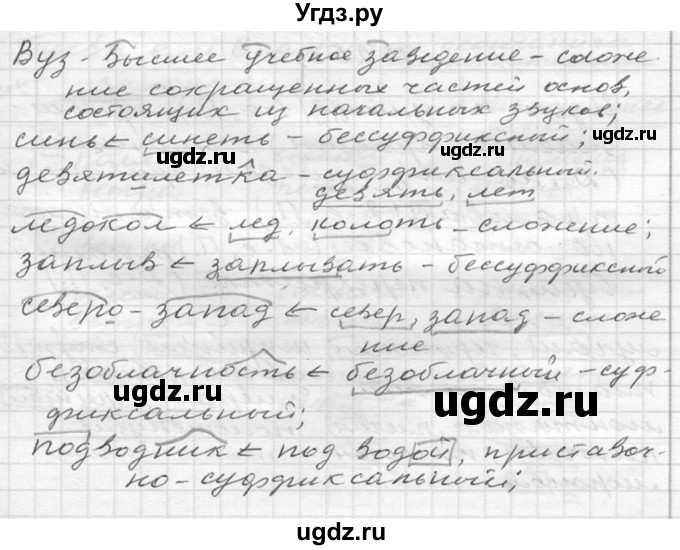 Угдз.ру
Вуз - Высшее учебное заведение - сложе-
ние сокращенных частей основ,
состоящих из начальных звуков;
синь ← синеть - бессуффиксный;
ugdz.ru ugdz.ru
девятилетка - суффиксальный.
девять, лет
ледокол ← лед, колоть - сложение;
ugdz.ru
заплыв ← заплывать - бессуффиксной
северо-запад ← север, запад - сложе
ние
ugdz.ru
безоблачность ← безоблачный - суф-
ugdz.ru ugdz.ru
фиксальный;
подводник ← под водой, приставоч-
но-суффиксальный;
ugdz.ru
ugdz.ru